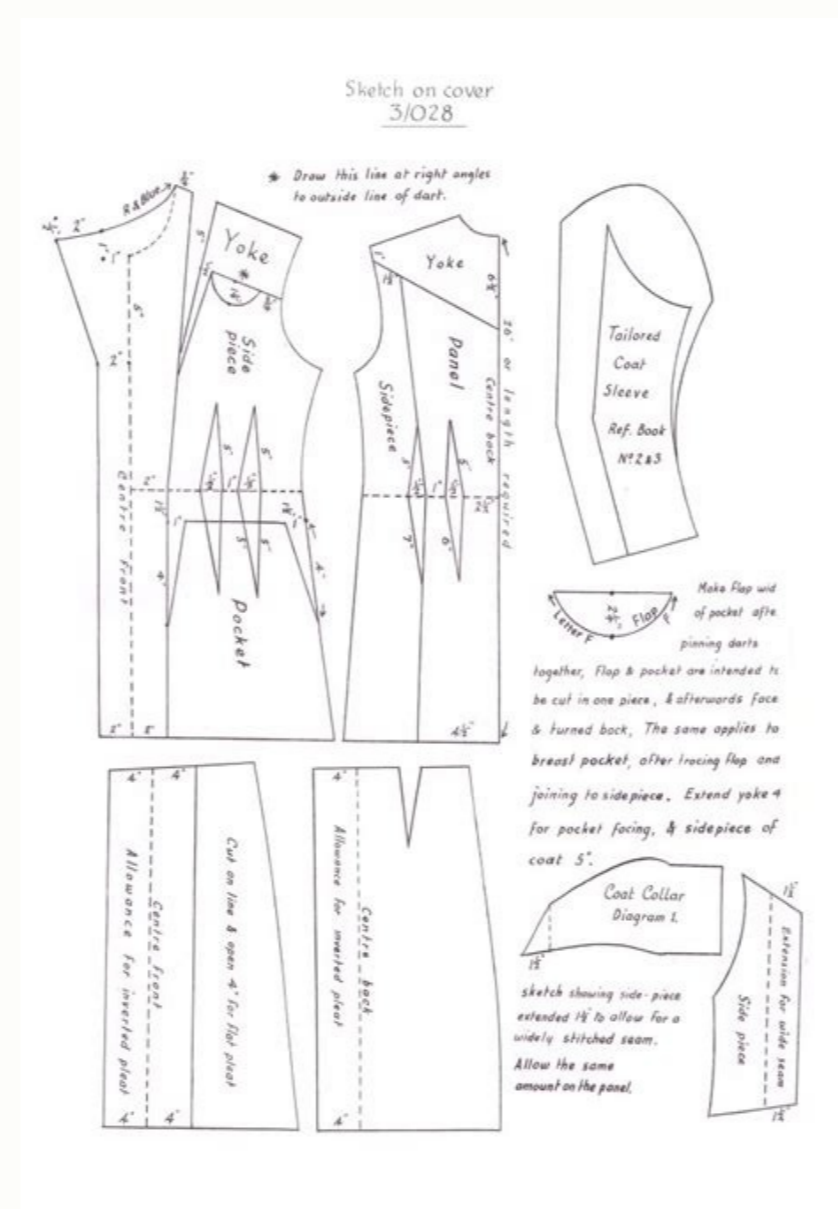 Sketch on cover
3/028
* Draw this line at right angles
to outside line of dart.
R & Blue
2"
1"
5"
Yoke
*
Side
piece
6"
2"
Centre front
5"
5"
1"
1"
4"
5"
5"
4"
Pocket
2"
2"
Yoke
1"
6½"
Panel
Sidepiece
Centre back
26" or length required
5"
5"
1"
7"
6"
4½"
Tailored
Coat
Sleeve
Ref. Book
Nº 2 & 3
Letter F
Flap
F
Make flap wid
of pocket afte
pinning darts
together, Flap & pocket are intended to
be cut in one piece, & afterwards face
& turned back, The same applies to
breast pocket, after tracing flap and
joining to sidepiece. Extend yoke 4
for pocket facing, & sidepiece of
coat 5".
4" 4"
Allowance for inverted pleat
Centre front
Cut on line & open 4" for flat pleat
4" 4"
4"
Allowance for inverted pleat
Centre back
4"
Coat Collar
Diagram 1.
1½"
sketch showing side-piece
extended 1½" to allow for a
widely stitched seam.
Allow the same
amount on the panel.
1½"
Extension for wide seam
Side piece
1½"